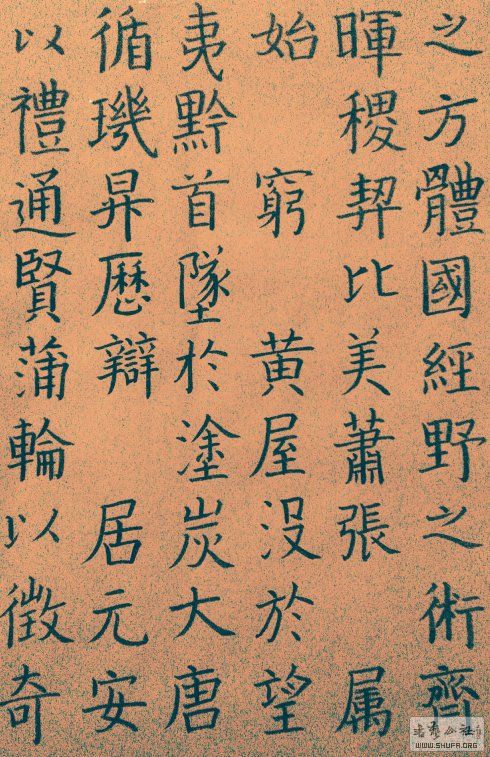 之方體國經野之術齊
暉稷契比美蕭張 属
始 窮 黄屋没於望
夷黔首墜於塗炭大唐
循璣昇歷辯 居元安
以禮通賢蒲輪以徵奇
书艺公社
WWW.SHUFA.ORG